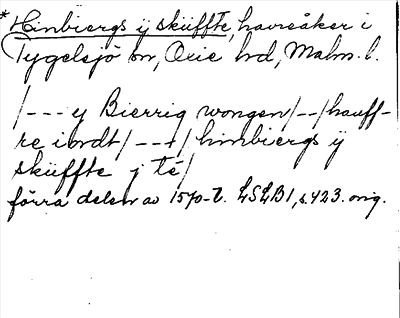 *Hinbiergs ÿ sküffte, havreåker i
Tygelsjö sn, Oxie hd, Malm. l.
/--- y Bierrig wongen/--/hauff-
re iordt/---/hinbiergs ÿ
sküffte j té/
förra delen av 1570-t. LSLB1, s. 423. orig.